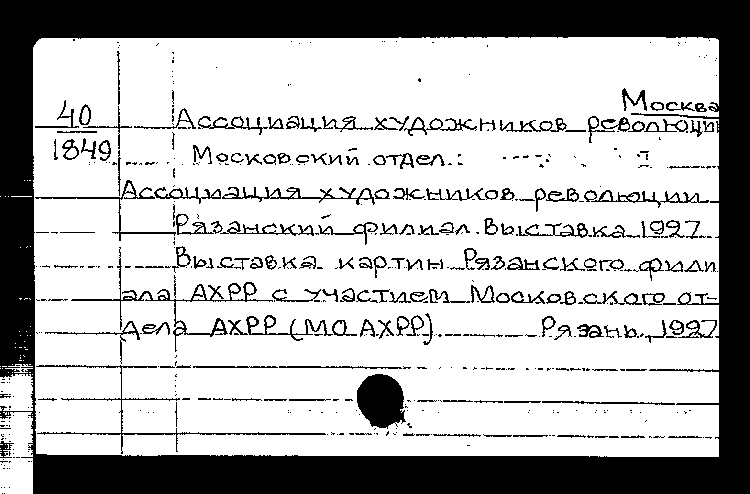 Москва
40
1849
Ассоциация художников революции
Московский отдел.: I
Ассоциация художников революции
Рязанский филиал. Выставка 1927
Выставка картин Рязанского фили
ала АХРР с участием Московского от-
дела АХРР (МО АХРР). Рязань, 1927